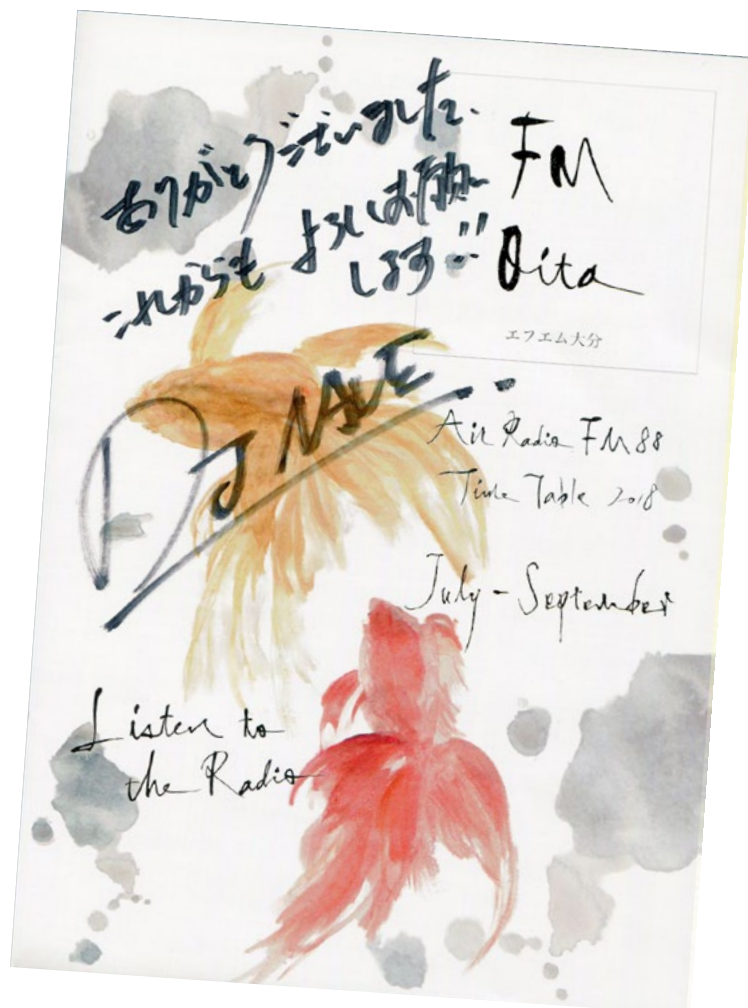 ありがとうございました、
これからも よろしくお願い
します!!
DJ NAVE
FM
Oita
エフエム大分
Air Radio FM 88
Time Table 2018
July - September
Listen to
the Radio